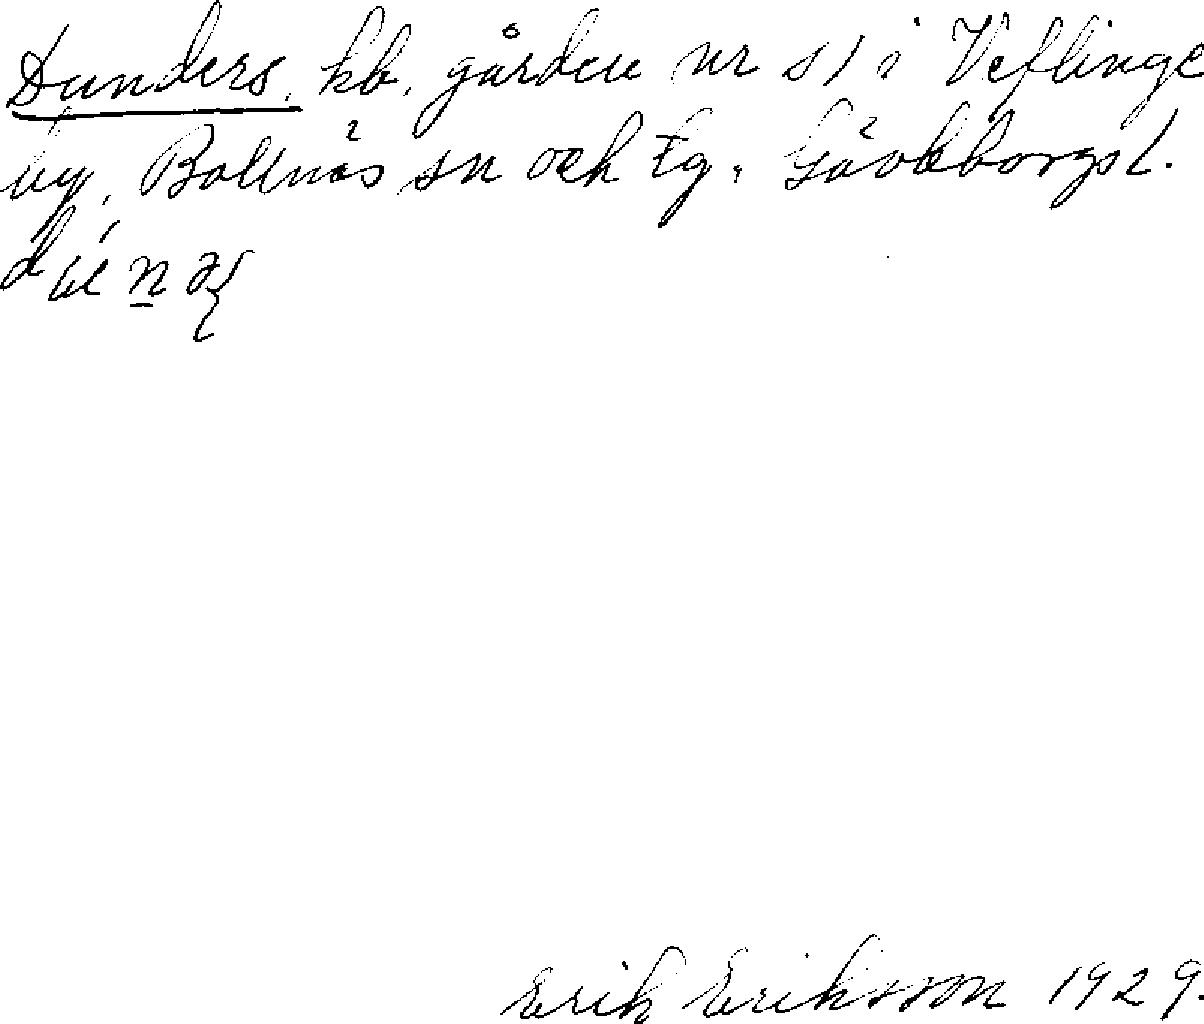 Dunders. kb. gården nr 51 i Veflinge
by, Bollnäs sn och tg. Gävleborgs l.
Erik Eriksson 1929.